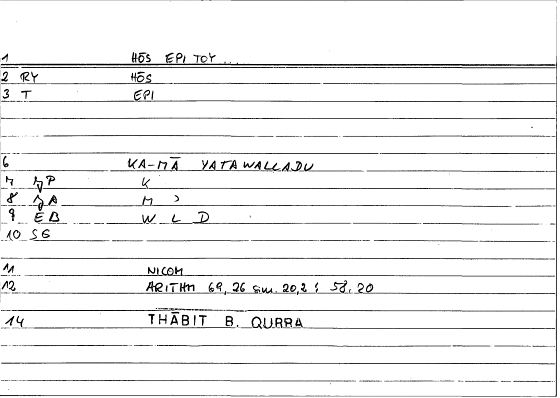 1 HŌS EPI TOY ...
2 RY HŌS
3 T EPI
6 KA-MĀ YATAWALLADU
7 P K
8 A M ɔ
9 EB W L D
10 SG
11 NICOM
12 ARITHM 69, 26 sim. 20,2 : 58.20
14 THĀBIT B. QURRA